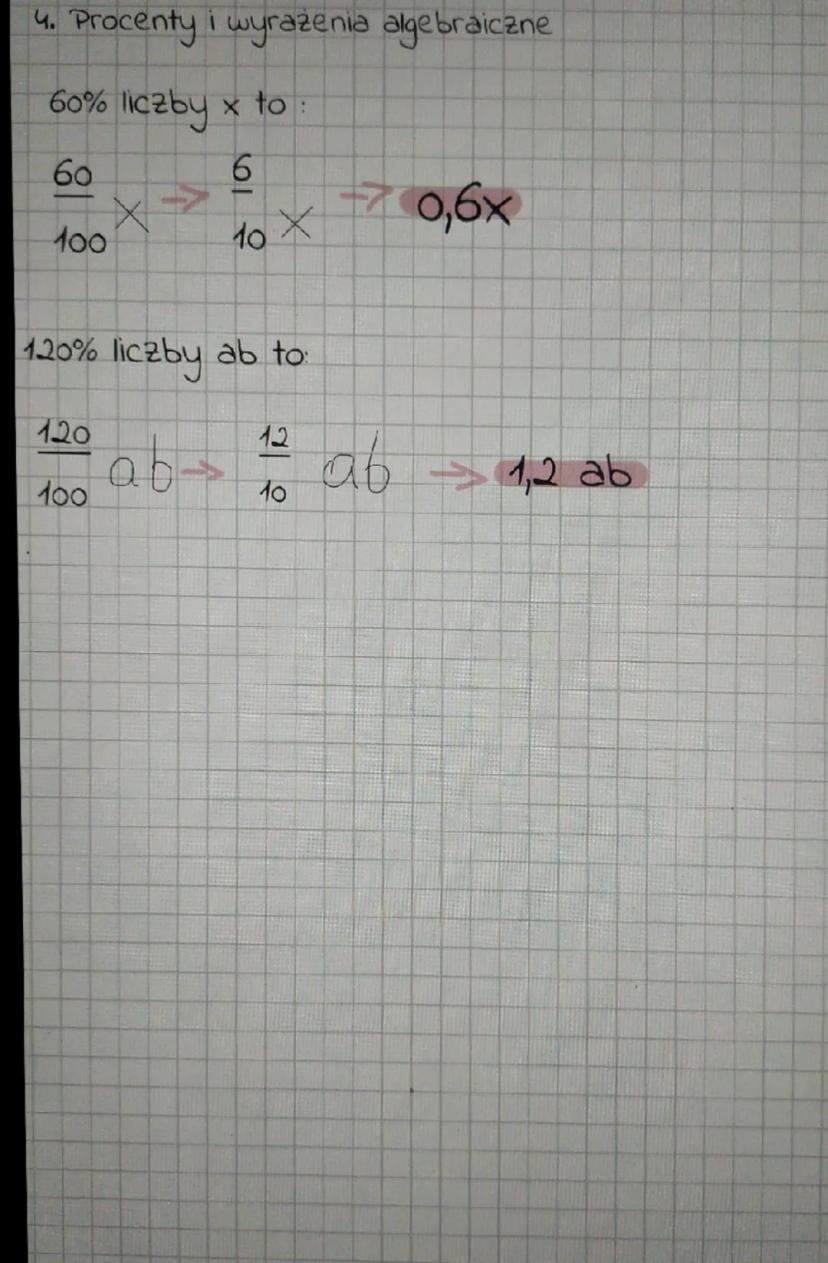 4. Procenty i wyrażenia algebraiczne
60% liczby x to :
60/100 x → 6/10 x → 0,6x
120% liczby ab to:
120/100 ab → 12/10 ab → 1,2 ab